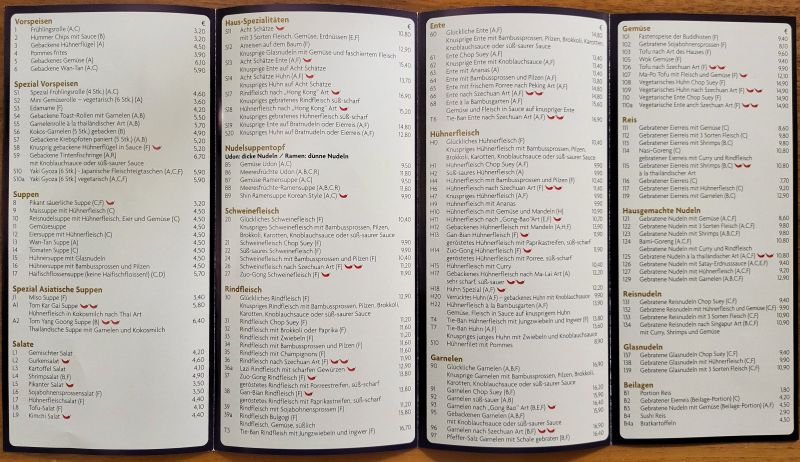 Vorspeisen €
1 Frühlingsrolle (A,C) 3,20
2 Hummer Chips mit Sauce (B) 3,20
3 Gebackene Hühnerflügel (A) 4,50
4 Pommes frites 3,90
5 Gebackenes Gemüse (A) 5,10
6 Gebackene Wan-Tan (A,C) 5,90
Spezial Vorspeisen
S1 Spezial Frühlingsrolle (4 Stk.) (A,C) 4,60
S2 Mini Gemüserolle – vegetarisch (6 Stk.) (A) 3,60
S3 Edamame (F) 4,20
S4 Gebackene Toast-Rollen mit Garnelen (A,B) 5,50
S5 Garnelenrolle à la thailändischer Art (A,B) 5,70
S6 Kokos-Garnelen (5 Stk.) gebacken (B) 4,90
S7 Gebackene Krebspfoten paniert (5 Stk.) (A,B) 5,20
S8 Knusprig gebackene Hühnerflügel in Sauce (F) 5,20
S9 Gebackene Tintenfischringe (A,R) 6,70
mit Knoblauchsauce oder süß-saurer Sauce
S10 Yaki Gyoza (6 Stk.) - Japanische Fleischteigtaschen (A,C,F) 5,90
S10a Yaki Gyoza (6 Stk.) vegetarisch (A,C,F) 5,90
Suppen
8 Pikant säuerliche Suppe (C,F) 3,20
9 Maissuppe mit Hühnerfleisch (C) 4,50
10 Reisnudelsuppe mit Hühnerfleisch, Eier und Gemüse (C) 4,50
11 Gemüsesuppe 4,50
12 Eiersuppe mit Hühnerfleisch (C) 4,50
13 Wan-Tan Suppe (A) 4,50
14 Tomaten Suppe (C) 4,50
15 Hühnersuppe mit Glasnudeln 4,50
16 Hühnersuppe mit Bambussprossen und Pilzen 4,50
17 Haifischflossensuppe (keine Haifischflossen!) (C,D) 5,70
Spezial Asiatische Suppen
J1 Miso Suppe (F) 3,40
A1 Tom Kar Gai Suppe 5,80
Hühnerfleisch in Kokosmilch nach Thai Art
A2 Tom Yang Goong Suppe (B) 6,40
Thailändische Suppe mit Garnelen und Kokosmilch
Salate
L1 Gemischter Salat 4,20
L2 Gurkensalat 4,60
L3 Kartoffel Salat 4,10
L4 Shrimpsalat (B,F) 4,90
L5 Pikanter Salat 3,50
L6 Sojabohnensprossensalat (F) 3,50
L7 Hühnerfleischsalat (F) 4,40
L8 Tofu-Salat (F) 4,10
L9 Kimchi Salat 4,40
Haus-Spezialitäten €
S11 Acht Schätze 10,80
mit 3 Sorten Fleisch, Gemüse, Erdnüssen (E,F)
S12 Ameisen auf dem Baum (F) 12,90
Knusprige Glasnudeln mit Gemüse und faschiertem Fleisch
S13 Acht Schätze Ente (A,F) 14,80
Knusprige Ente auf Acht Schätze
S14 Acht Schätze Huhn (A,F) 13,70
Knuspriges Huhn auf Acht Schätze
S17 Rindfleisch nach „Hong Kong“ Art 16,90
Knuspriges gebratenes Rindfleisch süß-scharf
S18 Hühnerfleisch nach „Hong Kong“ Art 15,40
Knuspriges Hühnerfleisch süß-scharf
S19 Knusprige Ente auf Bratnudeln oder Eierreis (A,F) 14,80
S20 Knuspriges Huhn auf Bratnudeln oder Eierreis (A,F) 12,80
Nudelsuppentopf
Udon: dicke Nudeln / Ramen: dünne Nudeln
B5 Gemüse Udon (A,C) 9,50
B6 Meeresfrüchte Udon (A,B,C,R) 11,80
B7 Gemüse-Ramensuppe (A,C) 9,50
B8 Meeresfrüchte-Ramensuppe (A,B,C,R) 11,80
B9 Shin Ramensuppe Korean Style (A,C) 9,90
Schweinefleisch
20 Glückliches Schweinefleisch (F) 10,40
Knuspriges Schweinefleisch mit Bambussprossen, Pilzen,
Brokkoli, Karotten, Knoblauchsauce oder süß-saurer Sauce
21 Schweinefleisch Chop Suey (F) 9,90
23 Süß-saures Schweinefleisch (A) 9,90
24 Schweinefleisch mit Bambussprossen und Pilzen (F) 10,40
26 Schweinefleisch nach Szechuan Art (F) 11,20
27 Zoo-Gong Schweinefleisch (F) 11,90
Rindfleisch
30 Glückliches Rindfleisch (F) 12,90
Knuspriges Rindfleisch mit Bambussprossen, Pilzen, Brokkoli,
Karotten, Knoblauchsauce oder süß-saurer Sauce
31 Rindfleisch Chop Suey (F) 11,20
32 Rindfleisch mit Brokkoli oder Paprika (F) 11,20
33 Rindfleisch mit Zwiebeln (F) 11,20
34 Rindfleisch mit Bambussprossen und Pilzen (F) 11,20
35 Rindfleisch mit Champignons (F) 11,20
36 Rindfleisch nach Szechuan Art (F) 11,90
36a Lazi Rindfleisch mit scharfen Gewürzen 11,90
37 Zoo-Gong Rindfleisch (F) 11,90
geröstetes Rindfleisch mit Porreestreifen, süß-scharf
38 Gan-Bian Rindfleisch (F) 11,90
geröstetes Rindfleisch mit Paprikastreifen, süß-scharf
39 Rindfleisch mit Sojabohnensprossen (F) 11,90
39a Rindfleisch Bulgogi (F) 15,80
Rindfleisch, Gemüse, süßlich
T3 Tie-Ban Rindfleisch mit Jungzwiebeln und Ingwer (F) 16,70
Ente €
60 Glückliche Ente (A,F) 14,80
Knusprige Ente mit Bambussprossen, Pilzen, Brokkoli, Karotten,
Knoblauchsauce oder süß-saurer Sauce
61 Ente Chop Suey (A,F) 14,80
62 Knusprige Ente mit Knoblauchsauce (A,F) 14,80
63 Ente mit Ananas (A) 14,80
64 Ente mit Bambussprossen und Pilzen (A,F) 14,80
65 Ente mit frischem Porree nach Peking Art (A,F) 14,80
66 Ente nach Szechuan Art (A,F) 14,80
68 Ente à la Bambusgarten (A,F) 14,80
Gemüse und Fleisch in Sauce auf knuspriger Ente
T6 Tie-Ban Ente nach Szechuan Art (A,F) 16,90
Hühnerfleisch
H0 Glückliches Hühnerfleisch (F) 10,40
Knuspriges Hühnerfleisch mit Bambussprossen, Pilzen,
Brokkoli, Karotten, Knoblauchsauce oder süß-saurer Sauce
H1 Hühnerfleisch Chop Suey (A,F) 9,90
H2 Süß-saures Hühnerfleisch (A) 9,90
H3 Hühnerfleisch mit Bambussprossen und Pilzen (F) 10,40
H6 Hühnerfleisch nach Szechuan Art (F) 10,90
H7 Hühnerfleisch mit Knoblauchsauce (F) 9,90
H9 Hühnerfleisch mit Ananas 9,90
H10 Hühnerfleisch mit Gemüse und Mandeln (H) 10,90
H11 Hühnerfleisch nach „Gong-Bao“ Art (E,F) 10,90
H12 Hühnerfleisch mit Mandeln (H) 10,90
H13 Gan-Bian Hühnerfleisch (F) 11,90
geröstetes Hühnerfleisch mit Paprikastreifen, süß-scharf
H14 Zoo-Gong Hühnerfleisch (F) 11,90
geröstetes Hühnerfleisch mit Porree, süß-scharf
H15 Hühnerfleisch mit Curry 10,40
H17 Gebackenes Hühnerfleisch nach Ma-Lai Art (A) 11,20
sehr scharf, süß-sauer
H18 Huhn Spezial (A,F) 11,20
H20 Verrücktes Huhn (A,F) – gebackenes Huhn mit Knoblauchsauce 9,90
H22 Hühnerfleisch à la Bambusgarten (A,F) 11,90
Gemüse, Fleisch in Sauce auf knusprigem Huhn
T4 Tie-Ban Hühnerfleisch mit Jungzwiebeln und Ingwer (F)
T7 Tie-Ban Huhn (A,F)
Knuspriges junges Huhn mit Zwiebeln und Knoblauch
510 Hühnerfilet mit Pommes 8,90
Garnelen
90 Glückliche Garnelen (A,B,F)
Knusprige Garnelen mit Bambussprossen, Pilzen, Brokkoli,
Karotten, Knoblauchsauce oder süß-saurer Sauce
91 Garnelen Chop Suey (B,F) 16,20
92 Garnelen süß-sauer (A,B) 16,20
93 Garnelen nach „Gong Bao“ Art (B,E,F) 16,90
95 Gebackene Garnelen (A,B,F)
mit Knoblauchsauce oder süß-saurer Sauce
96 Garnelen nach Szechuan Art (B,F) 16,90
97 Pfeffer-Salz Garnelen mit Schale gebraten (B,F) 16,40
Gemüse €
101 Fastenspeise der Buddhisten (F) 9,40
102 Gebratene Sojabohnensprossen (F) 8,10
105 Gebratene Bambussprossen und Pilze (F) 9,40
106 Wok Gemüse (F) 9,40
106 Tofu nach Szechuan Art (A,F) 9,90
107 Ma-Po Tofu mit Fleisch und Gemüse (F) 12,10
108 Vegetarisches Huhn Chop Suey (F) 14,90
109 Vegetarisches Huhn nach Szechuan Art (A,F) 14,90
110 Vegetarische Ente Chop Suey (F) 14,90
110a Vegetarische Ente nach Szechuan Art (A,F) 14,90
Reis
111 Gebratener Eierreis mit Gemüse (C) 8,60
112 Gebratener Eierreis mit 3 Sorten Fleisch (C) 9,80
113 Gebratener Eierreis mit Shrimps (B,C) 9,80
114 Nasi-Goreng (C) 10,80
gebratener Eierreis mit Curry und Rindfleisch
115 Gebratener Eierreis mit Shrimps (B,C) 10,80
à la thailändischer Art
116 Gebratener Eierreis (C) 7,70
117 Gebratener Eierreis mit Hühnerfleisch (C) 9,20
119 Gebratener Eierreis mit Garnelen (B,C) 12,90
Hausgemachte Nudeln
121 Gebratene Nudeln mit Gemüse (A,C,F) 8,60
122 Gebratene Nudeln mit 3 Sorten Fleisch (A,C,F) 9,80
123 Gebratene Nudeln mit Shrimps (A,B,C,F) 9,80
124 Bami-Goreng (A,C,F) 10,80
Gebratene Nudeln mit Curry und Rindfleisch
125 Gebratene Nudeln à la thailändischer Art (A,C,F) 10,80
126 Gebratene Nudeln mit Satay-Erdnusssauce (A,C,E,F) 9,40
127 Gebratene Nudeln mit Hühnerfleisch (A,C,F) 9,20
129 Gebratene Nudeln mit Garnelen (A,B,C,F) 12,90
Reisnudeln
131 Gebratene Reisnudeln Chop Suey (C,F) 9,40
132 Gebratene Reisnudeln mit Hühnerfleisch und Gemüse (C,F) 9,50
133 Gebratene Reisnudeln mit 3 Sorten Fleisch (C,F) 9,90
134 Gebratene Reisnudeln nach Singapur Art (B,C,F) 11,90
mit Curry, Shrimps und Gemüse
Glasnudeln
137 Gebratene Glasnudeln Chop Suey (C,F) 9,40
138 Gebratene Glasnudeln mit Hühnerfleisch (C,F) 9,90
139 Gebratene Glasnudeln mit 3 Sorten Fleisch (C,F) 9,90
Beilagen
B1 Portion Reis 1,80
B2 Gebratener Eierreis (Beilage-Portion) (C) 4,20
B3 Gebratene Nudeln mit Gemüse (Beilage-Portion) (A,F) 4,50
B4 Sushi Reis 2,90
B4a Bratkartoffeln 4,50